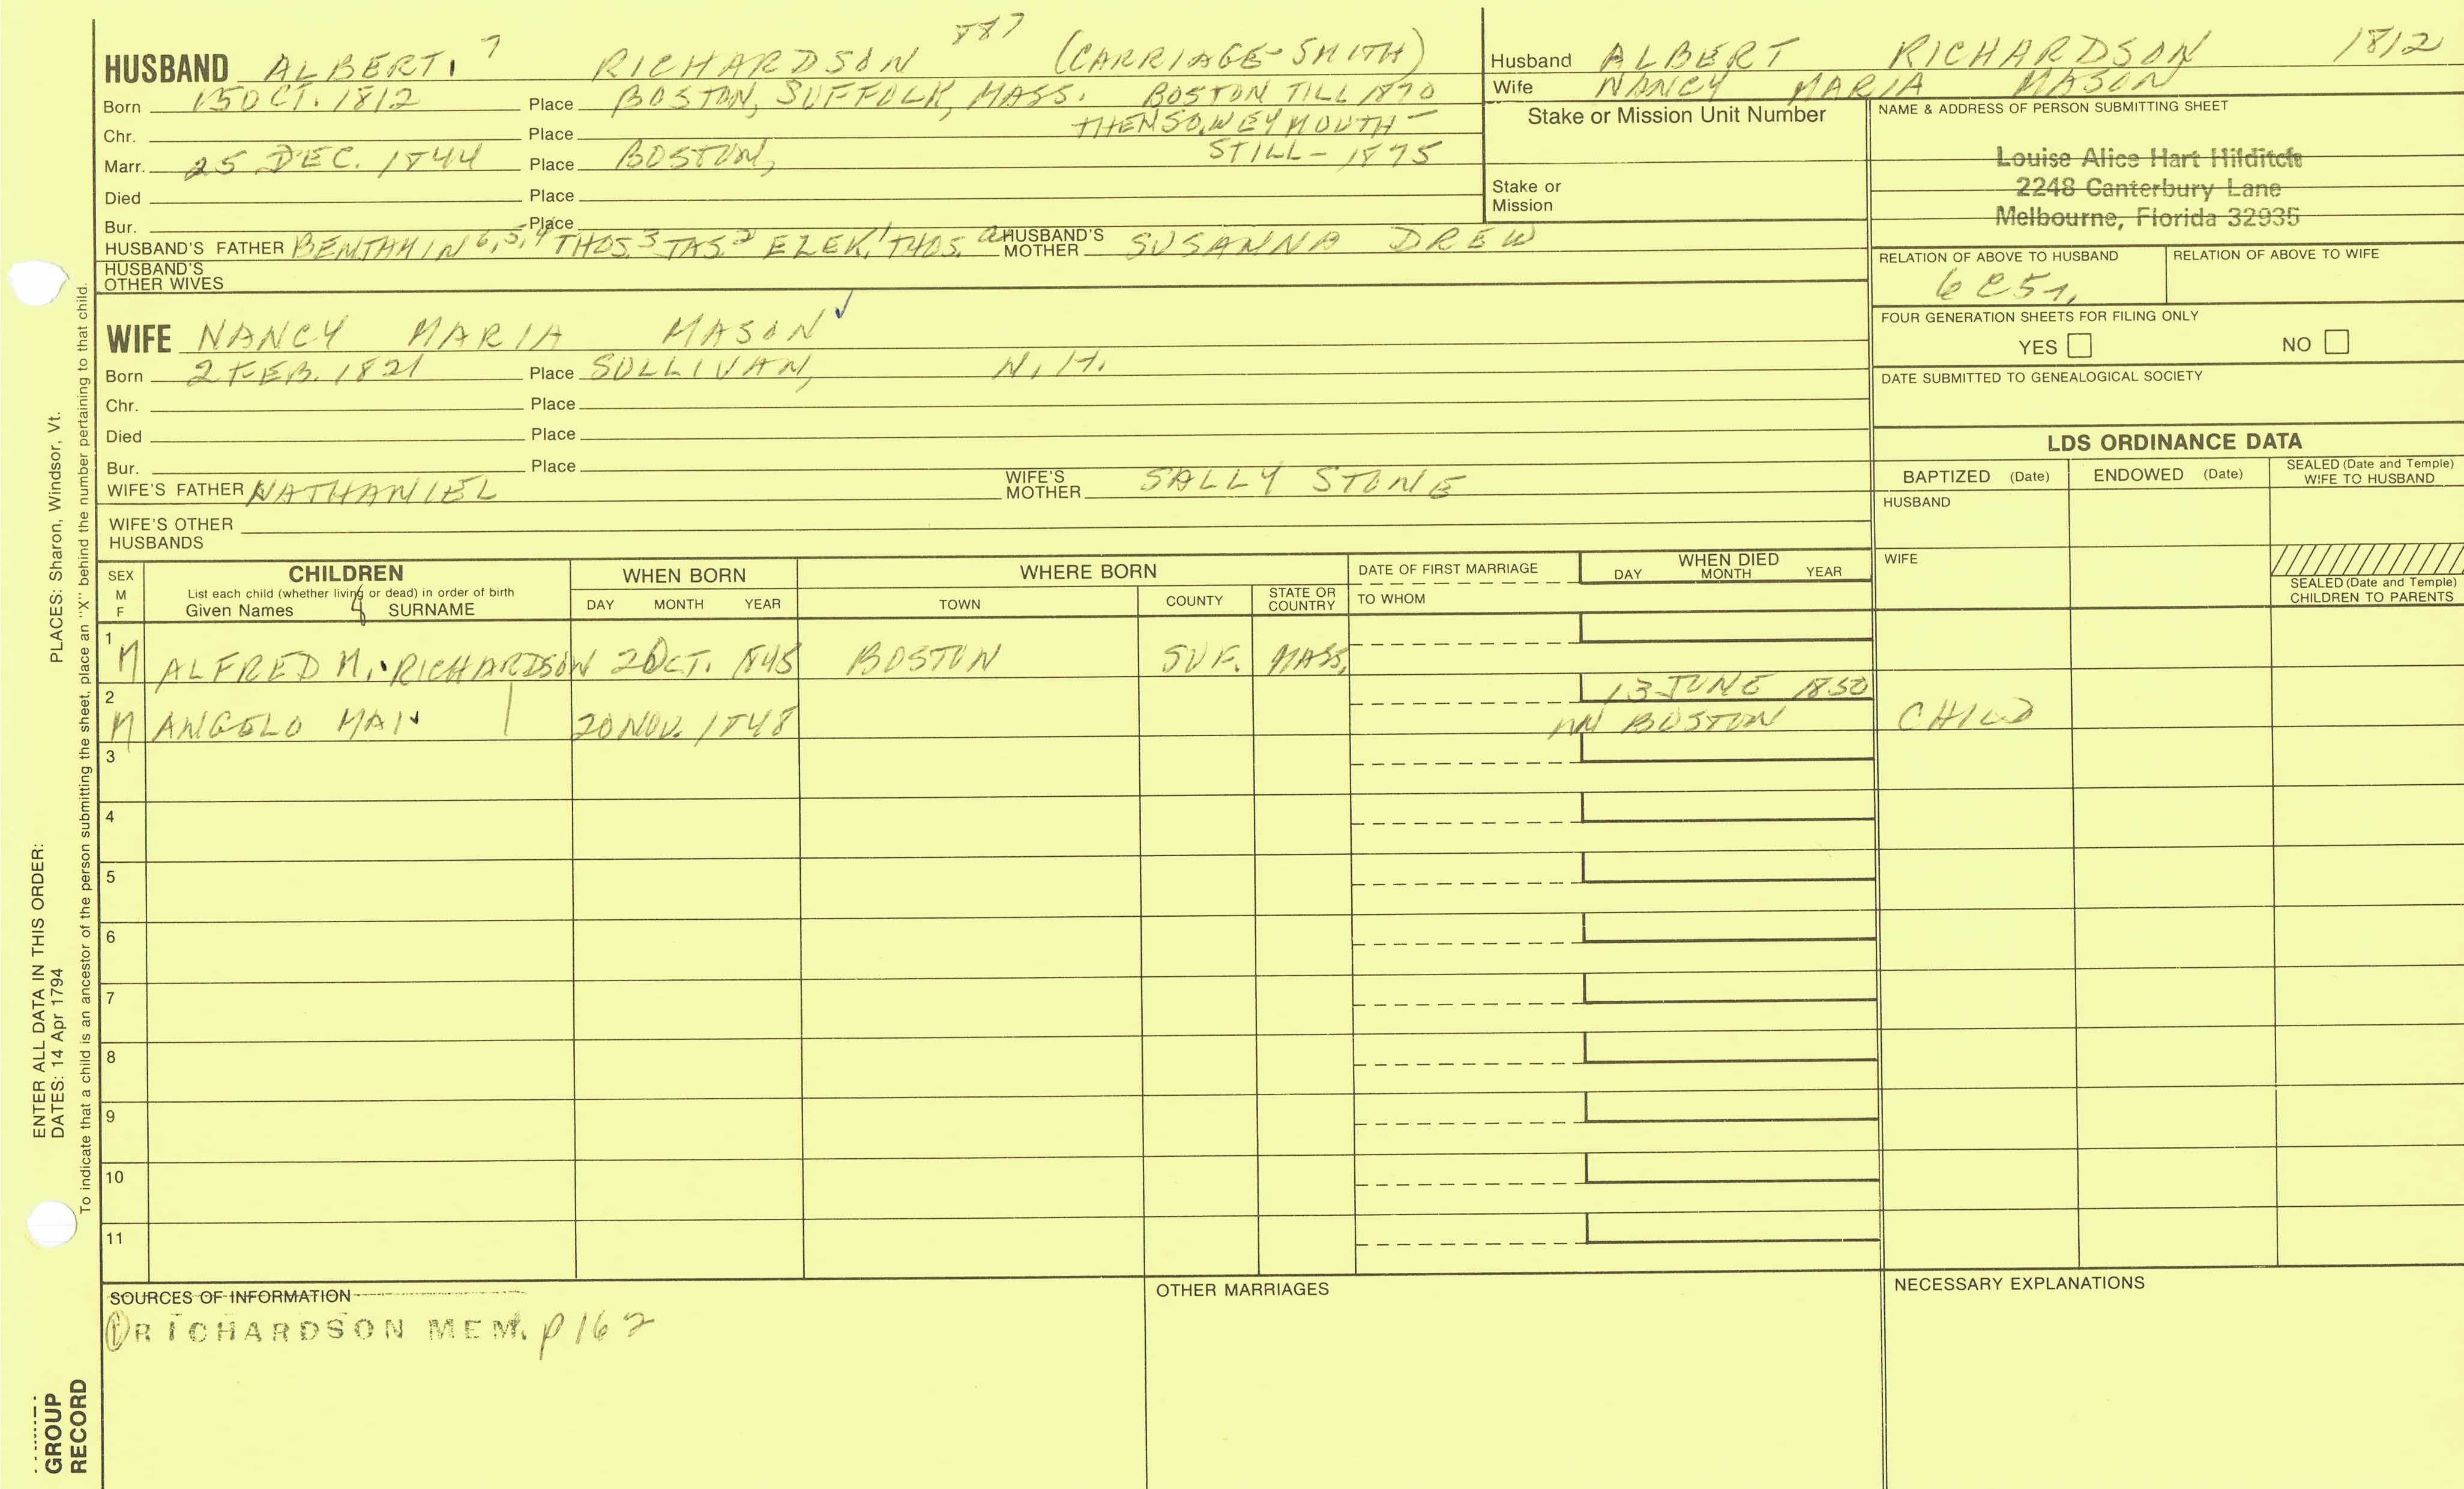 HUSBAND ALBERT. 7 RICHARDSON 887 (CARRIAGE-SMITH)
Born 15 OCT. 1812 Place BOSTON, SUFFOLK, MASS. BOSTON TILL 1870
Chr. Place THEN SO. WEYMOUTH -
Marr. 25 DEC. 1844 Place BOSTON, STILL - 1875
Died Place
Bur. Place
HUSBAND'S FATHER BENJAMIN 6,5,4 THOS. 3 JAS. 2 EZEK. 1 THOS. a HUSBAND'S MOTHER SUSANNA DREW
HUSBAND'S OTHER WIVES
Husband ALBERT RICHARDSON 1812
Wife NANCY MARIA MASON
Stake or Mission Unit Number
Stake or
Mission
NAME & ADDRESS OF PERSON SUBMITTING SHEET
Louise Alice Hart Hilditch
2248 Canterbury Lane
Melbourne, Florida 32935
RELATION OF ABOVE TO HUSBAND RELATION OF ABOVE TO WIFE
6C5r.
FOUR GENERATION SHEETS FOR FILING ONLY
YES NO
DATE SUBMITTED TO GENEALOGICAL SOCIETY
WIFE NANCY MARIA MASON ✓
Born 2 FEB. 1821 Place SULLIVAN, N.H.
Chr. Place
Died Place
Bur. Place
WIFE'S FATHER NATHANIEL WIFE'S MOTHER SALLY STONE
WIFE'S OTHER
HUSBANDS
LDS ORDINANCE DATA
BAPTIZED (Date) ENDOWED (Date) SEALED (Date and Temple) WIFE TO HUSBAND
HUSBAND
WIFE
SEALED (Date and Temple)
CHILDREN TO PARENTS
SEX M F CHILDREN WHEN BORN WHERE BORN DATE OF FIRST MARRIAGE WHEN DIED
List each child (whether living or dead) in order of birth DAY MONTH YEAR
Given Names & SURNAME DAY MONTH YEAR TOWN COUNTY STATE OR COUNTRY TO WHOM
1 M ALFRED M. RICHARDSON 2 OCT. 1845 BOSTON SUF. MASS.
2 13 JUNE 1850
M ANGELO MAI 20 NOV. 1848 BOSTON CHILD
3
4
5
6
7
8
9
10
11
SOURCES OF INFORMATION OTHER MARRIAGES NECESSARY EXPLANATIONS
① RICHARDSON MEM. p 162
PLACES: Sharon, Windsor, Vt.
ENTER ALL DATA IN THIS ORDER:
DATES: 14 Apr 1794
To indicate that a child is an ancestor of the person submitting the sheet, place an "X" behind the number pertaining to that child.
GROUP
RECORD